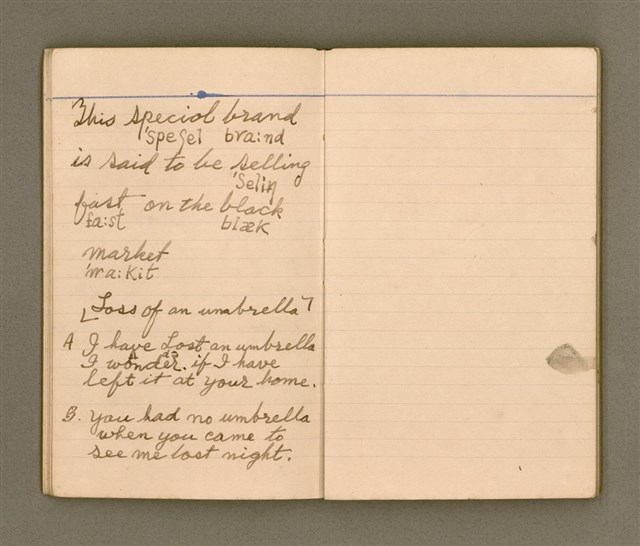 This special brand
'speʃel bra:nd
is said to be selling
'Seliŋ
fast on the black
fa:st blæk
market
'ma:kit
「Loss of an unabrella」
A I have Lost an umbrella
I wonder. if I have
left it at your home.
B. you had no umbrella
when you came to
see me last night.